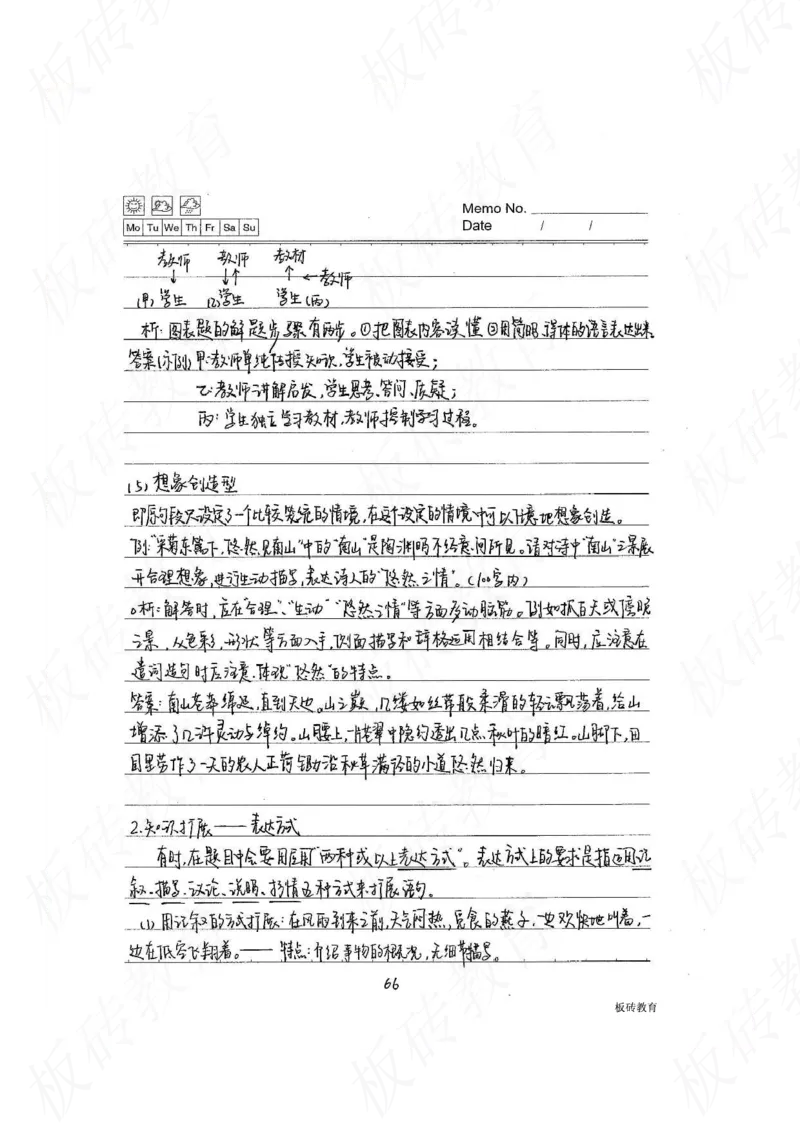 Memo No.
Mo Tu We Th Fr Sa Su
Date / /
教师 教师 教材
↓ ↓↑ ↑ ←教师
(甲)学生 乙学生 学生(丙)
析:图表题的解题步骤有两步。①把图表内容读懂②用简明、得体的语言表达出来。
答案(示例)甲:教师单纯传授知识,学生被动接受;
乙:教师讲解启发,学生思考、答问、质疑;
丙:学生独立学习教材,教师控制学习过程。
(5)想象创造型
即原句段只设定了一个比较笼统的情境,在这个设定的情境中可以任意地想象创造。
例:"采菊东篱下,悠然见南山"中的"南山"是陶渊明不经意间所见。请对诗中"南山"之景展
开合理想象,进行生动描写,表达诗人的"悠然之情"。(100字内)
析:解答时,应在"合理"、"生动"、"悠然之情"等方面多动脑筋。例如抓白天或傍晚
之景,从色彩,形状等方面入手,侧面描写和辞格运用相结合等。同时,应注意在
遣词造句时应注意,体现"悠然"的特点。
答案:南山苍莽绵延,直到天边。山之巅,几缕如丝带般柔滑的轻云飘荡着,给山
增添了几许灵动与绰约。山腰上,一片苍翠中隐约透出几点秋叶的暗红。山脚下,田
园里劳作了一天的农人正荷锄沿秋草满径的小道悠然归来。
2.知识扩展——表达方式
有时,在题目中会要用应用"两种或以上表达方式"。表达方式上的要求是指运用记
叙、描写、议论、说明、抒情五种方式来扩展语句。
(1)用记叙的方式扩展:在风雨到来之前,天气闷热,觅食的燕子,一边欢快地叫着,一
边在低空飞翔着。——特点:介绍事物的概况,无细节描写。
66
板砖教育